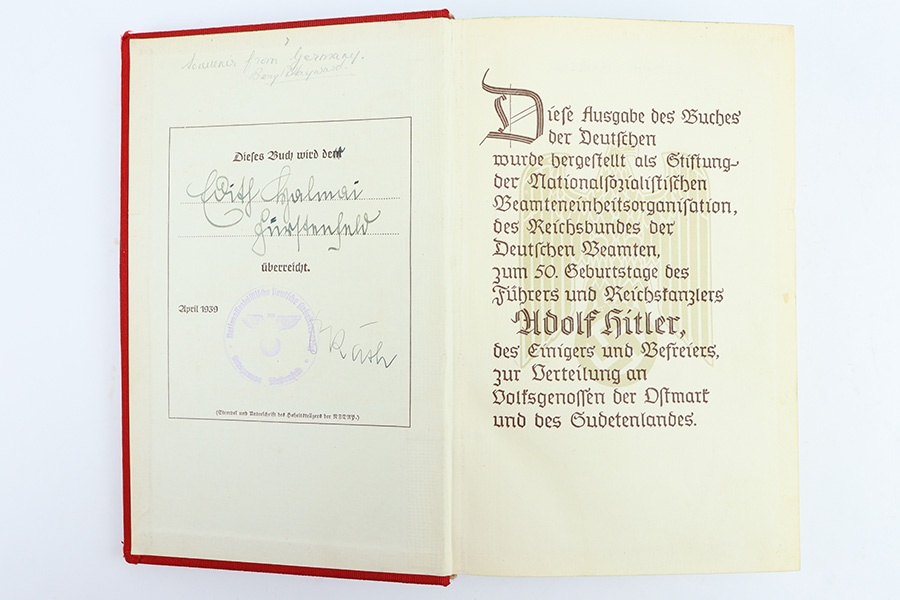 from Germany.
Dieses Buch wird dem
Edith Halmai
Fürstenfeld
überreicht.
April 1939
Räth
(Stempel und Unterschrift des Hoheitsträgers der NSDAP.)
Diese Ausgabe des Buches
der Deutschen
wurde hergestellt als Stiftung
der Nationalsozialistischen
Beamteneinheitsorganisation,
des Reichsbundes der
Deutschen Beamten,
zum 50. Geburtstage des
Führers und Reichskanzlers
Adolf Hitler,
des Einigers und Befreiers,
zur Verteilung an
Volksgenossen der Ostmark
und des Sudetenlandes.